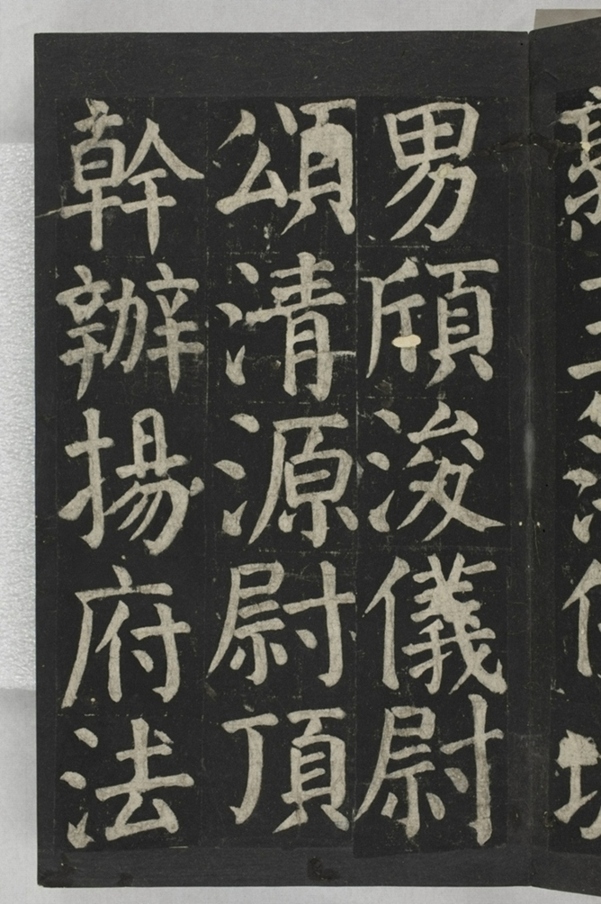 男頎浚儀尉
頌清源尉頂
幹辦揚府法